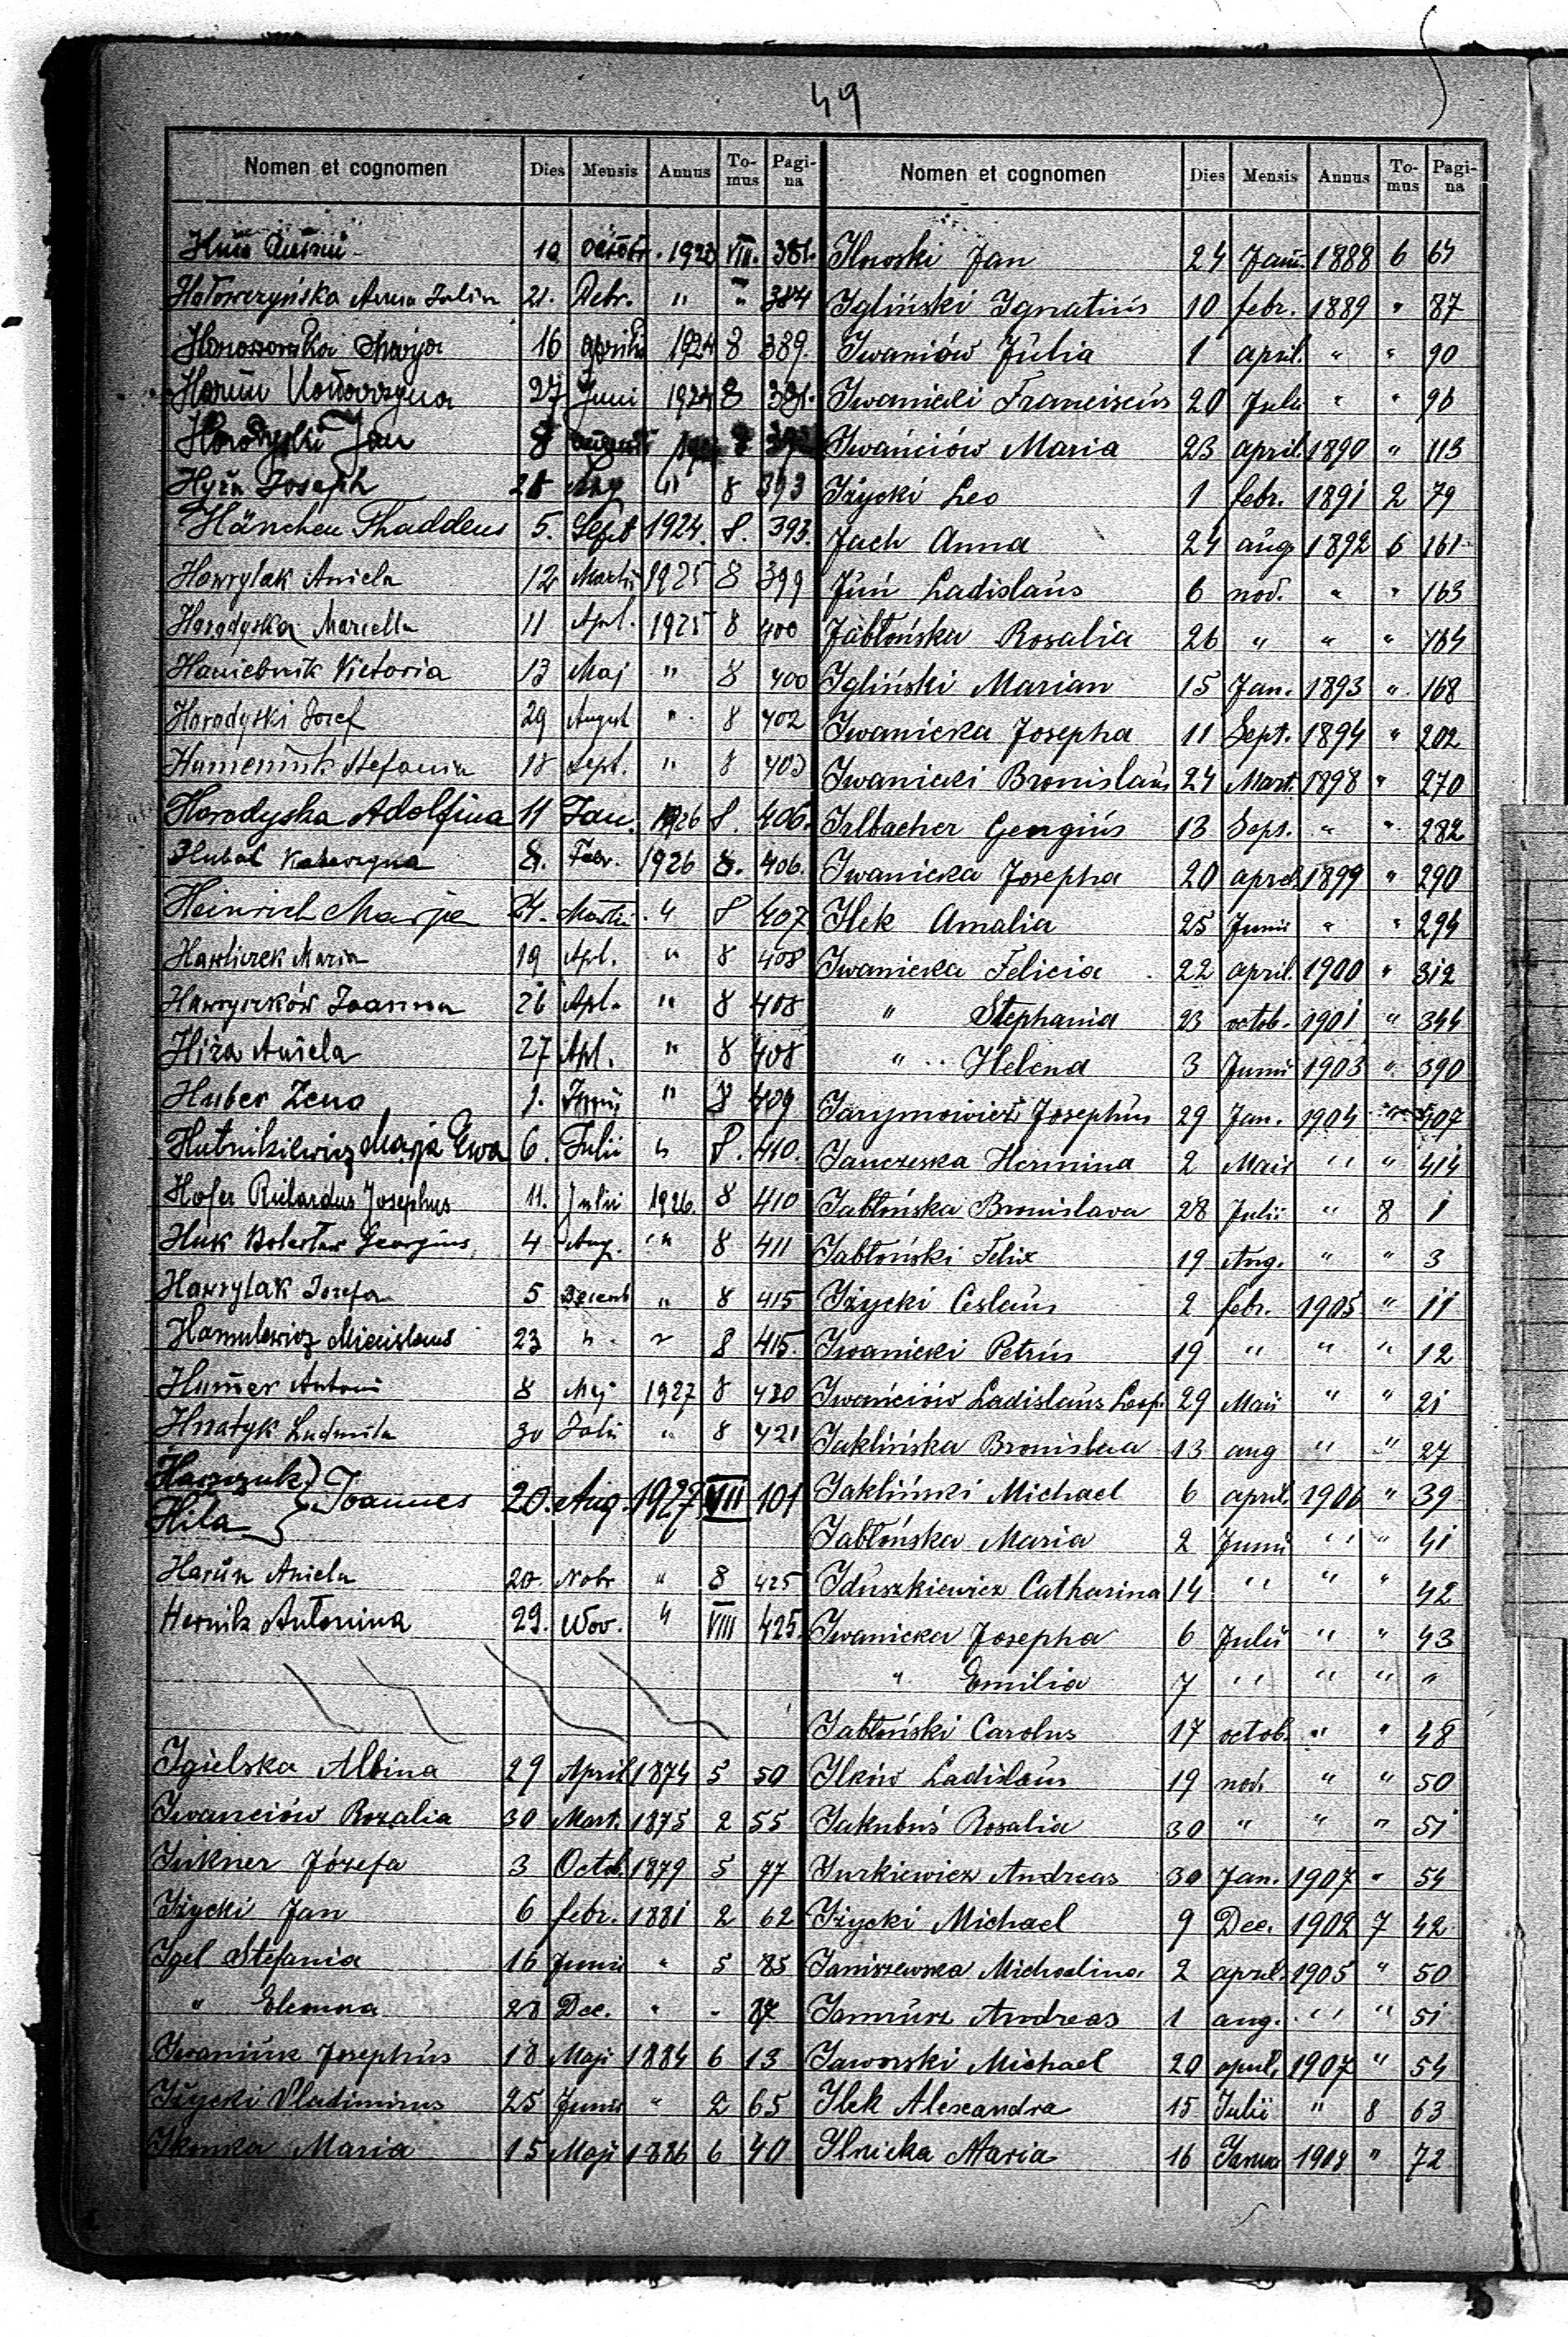 49
Nomen et cognomen Dies Mensis Annus To-mus Pagi-na
10 1923 VIII. 381.
Hołowczyńska Anna Julia 21. " " 384
Marja 16 aprilis 1924 8 389.
Harun Katarzyna 27 Juni 1924 8 391.
Horodyski Jan 8
Hyża Joseph 28 Aug " 8 393
Hänchen Thaddeus 5. Sept 1924. 8. 393.
Hawrylak Aniela 12 Martii 1925 8 399
Horodyska Mariella 11 Apl. 1925 8 400
Victoria 13 Maj " 8 400
Horodyski Josef 29 August " 8 402
Stefania 18 Sept. " 8 403
Horodyska Adolfina 11 Jan. 1926 8. 406.
Hubal Katarzyna 8. Febr. 1926 8. 406.
Heinrich Marja 24. Martii " 8 407
Hawliczek Maria 19 Apl. " 8 408
Hawryszków Joanna 26 Apl. " 8 408
Hiża Aniela 27 Apl. " 8 408
Huber Zeno 1. Junii " 8 409
Hutnikiewicz Marja Ewa 6. Julii " 8. 410.
Hofer Richardus Josephus 11. Julii 1926. 8 410
Huk Bolesław Georgius, 4 Aug. " 8 411
Hawrylak Josefa 5 Decemb " 8 415
Hamulewicz Miecislaus 23 " " 8 415.
Antoni 8 Maj 1927 8 420
Hnatyk Ludmila 30 Julii " 8 421
Hawczuk }
Hiła } Joannes 20. Aug. 1927 VII 101
Harun Aniela 20. Nobr " 8 425
Hernik Antonina 29. Nov. " VIII 425.
Igielska Albina 29 April 1874 5 50
Iwanciów Rozalia 30 Mart. 1875 2 55
Józefa 3 Octob. 1879 5 77
Iżycki Jan 6 febr. 1881 2 62
Igel Stefania 16 Junii " 5 85
" 28 Dec. " " 87
Iwaniuk Josephus 18 Maji 1884 6 13
Iżycki Vladimirus 25 Junii " 2 65
Maria 15 Maji 1886 6 40
Nomen et cognomen Dies Mensis Annus To-mus Pagi-na
Jan 24 Janu. 1888 6 64
Igliński Ignatius 10 febr. 1889 " 87
Iwaniów Julia 1 april. " " 90
Iwanicki Franciscus 20 Julii " " 96
Iwańciów Maria 23 april. 1890 " 113
Iżycki Leo 1 febr. 1891 2 79
Jach Anna 24 aug. 1892 6 161
Juń Ladislaus 6 nov. " " 163
Jabłońska Rosalia 26 " " " 164
Igliński Marian 15 Jan. 1893 " 168
Iwanicka Josepha 11 Sept. 1894 " 202
Iwanicki Bronislaus 24 Mart. 1898 " 270
Georgius 13 Sept. " " 282
Iwanicka Josepha 20 april 1899 " 290
Ilek Amalia 25 Junii " " 294
Iwanicka Felicia 22 april. 1900 " 312
" Stephania 23 octob. 1901 " 344
" Helena 3 Junii 1903 " 390
Jarymowicz Josephus 29 Jan. 1904 " 407
Janczeska Hermina 2 Maii " " 414
Jabłońska Bronislava 28 Julii " 8 1
Jabłoński Felix 19 Aug. " " 3
Iżycki Ceslaus 2 febr. 1905 " 11
Iwanicki Petrus 19 " " " 12
Iwańciów Ladislaus Leop. 29 Maii " " 21
Jaklińska Bronislaa 13 aug " " 27
Jakliński Michael 6 april. 1906 " 39
Jabłońska Maria 2 Junii " " 41
Iduszkiewicz Catharina 14 " " " 42
Iwanicka Josepha 6 Julii " " 43
" Emilia 7 " " " "
Jabłoński Carolus 17 octob. " " 48
Ilków Ladislaus 19 nov. " " 50
Jakubuś Rosalia 30 " " " 51
Jurkiewicz Andreas 30 Jan. 1907 " 54
Iżycki Michael 9 Dec. 1902 7 42
Janiszewska Michalina 2 april. 1905 " 50
Andreas 1 aug. " " 51
Jaworski Michael 20 april. 1907 " 54
Ilek Alexandra 15 Julii " 8 63
Ilnicka Maria 16 Janua 1908 " 72